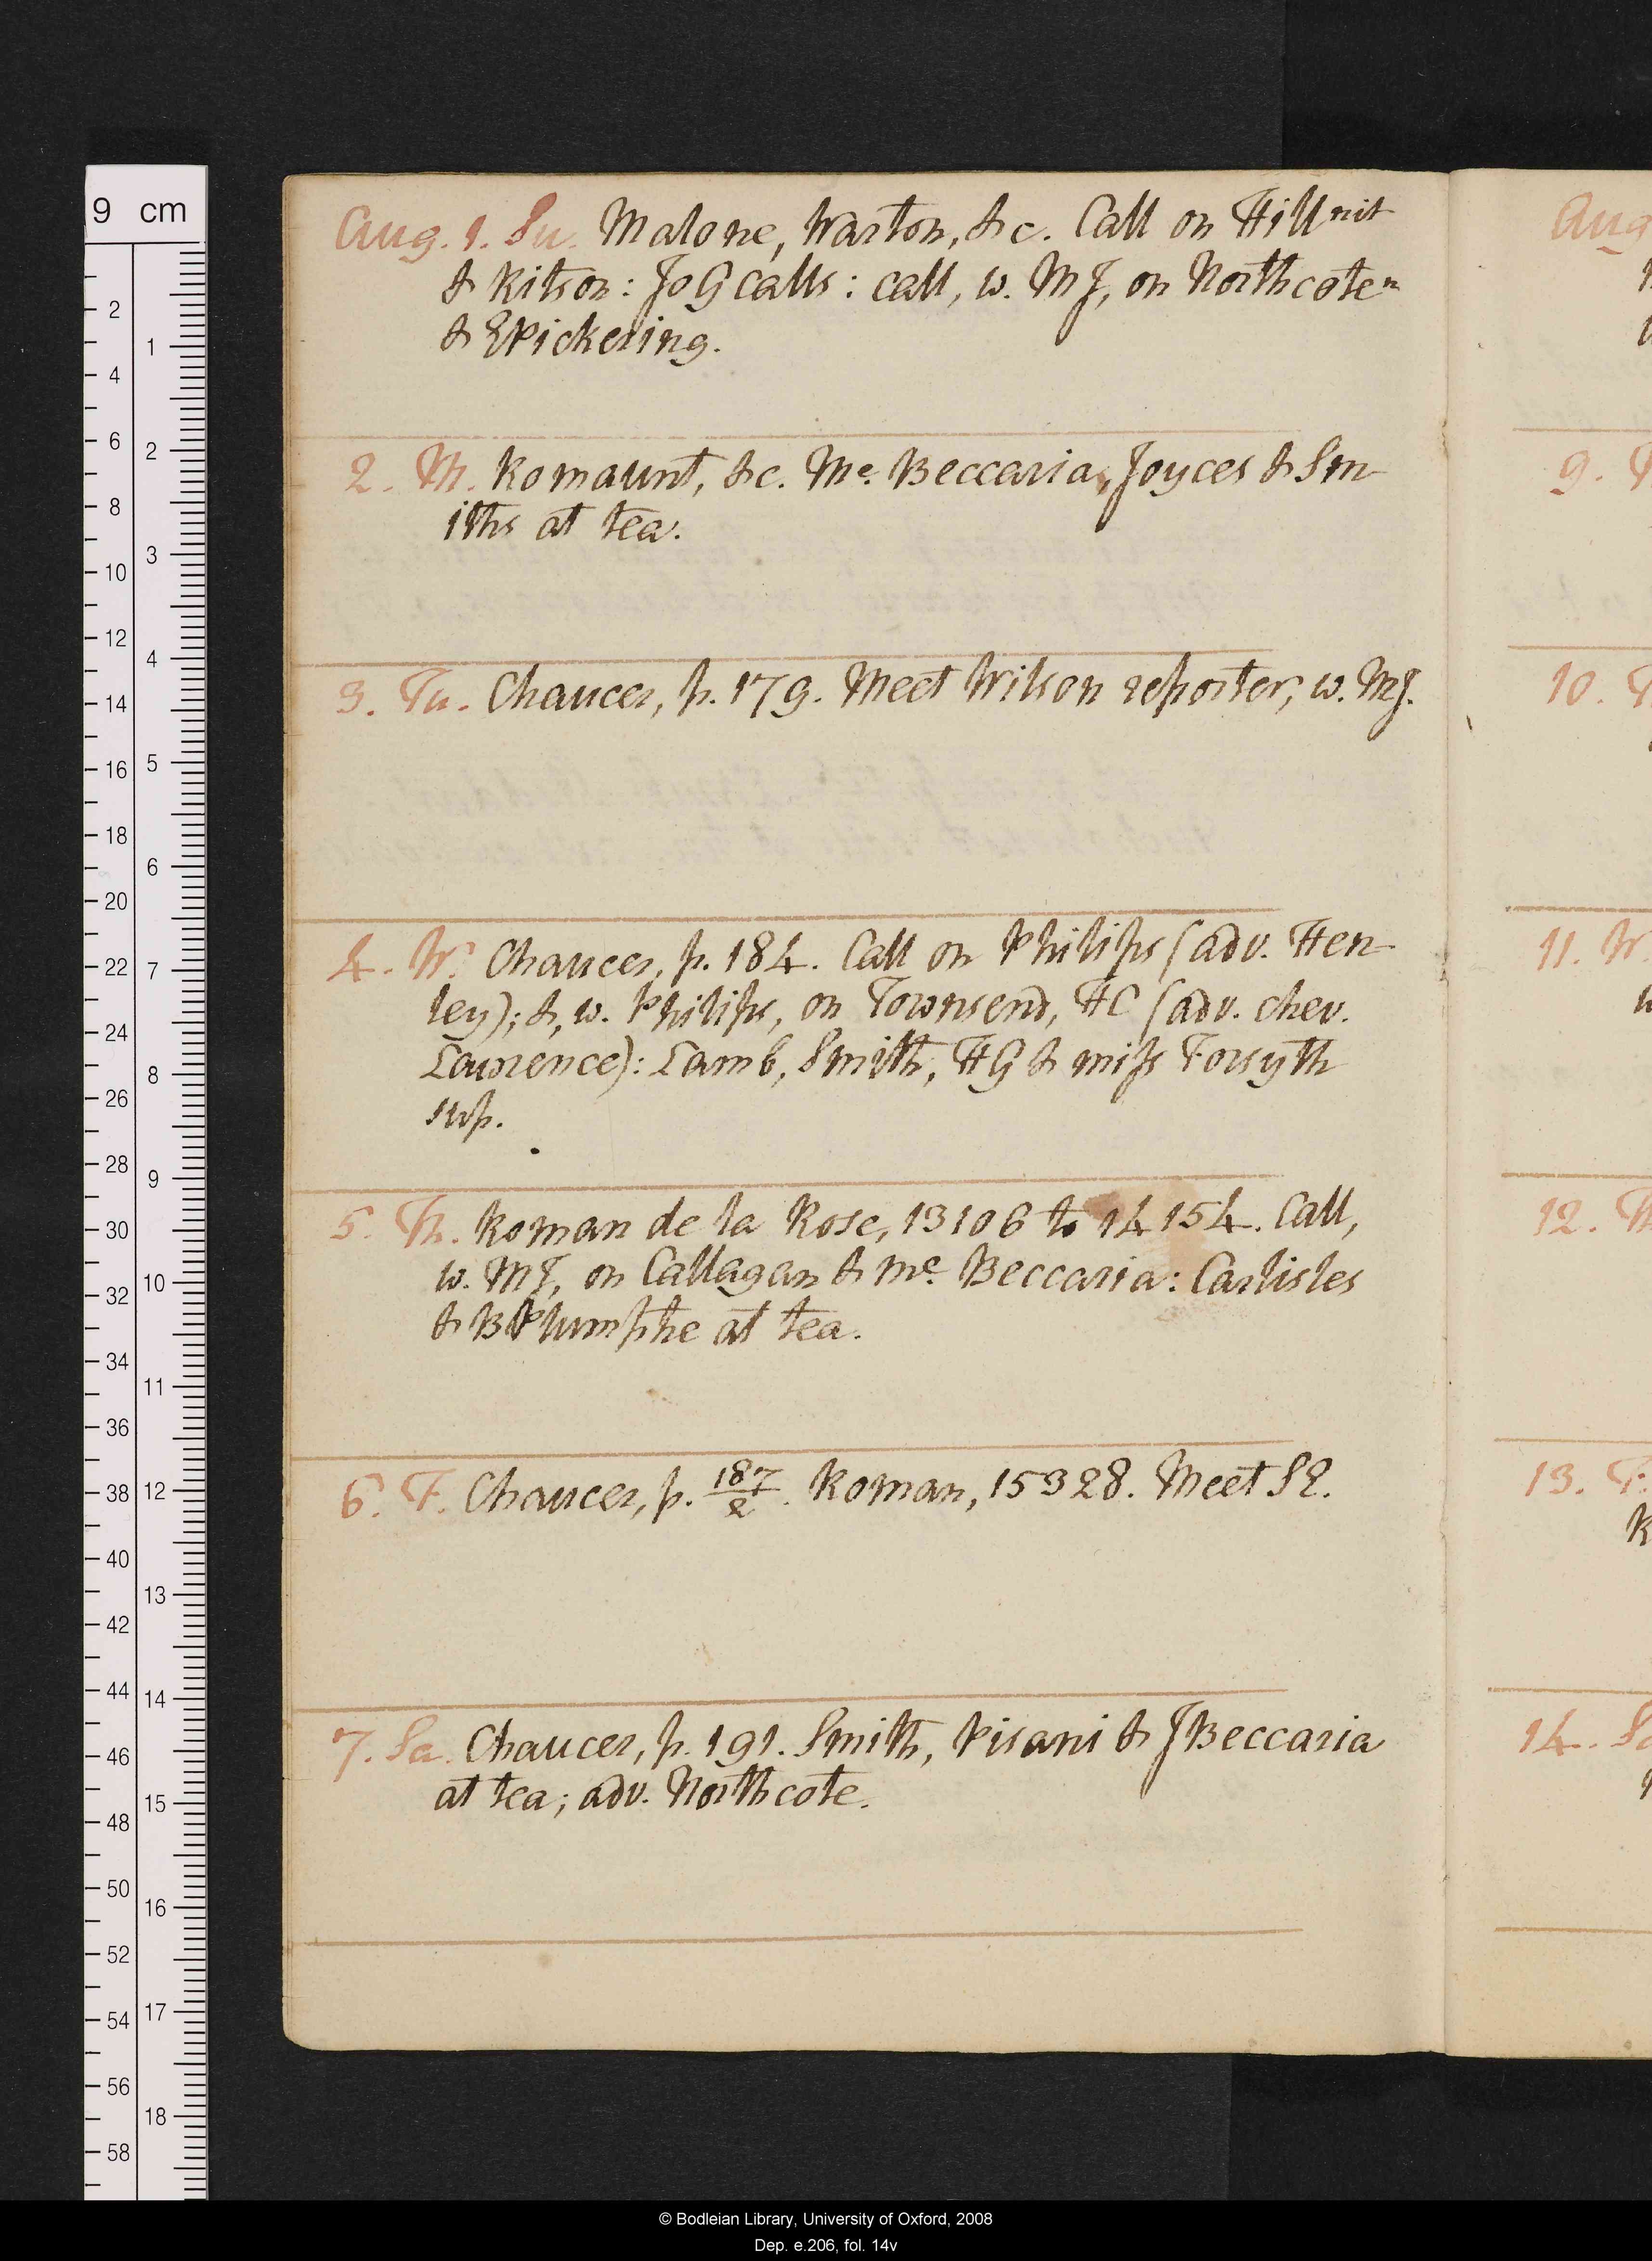 Aug. 1. Su. Malone, Warton, &c. Call on Hill nit
& Ritson: JoG calls: call, w. MJ, on Northcote n
& EPickering.
2. M. Romaunt, &c. Me. Beccaria, Joyces & Sm-
iths at tea.
3. Tu. Chaucer, p. 179. Meet Wilson reporter, w. MJ.
4. W. Chaucer, p. 184. Call on Philips (adv. Hen-
ley); &, w. Philips, on Townsend, HC (adv. chev.
Lawrence): Lamb, Smith, HG & miss Forsyth
sup.
5. Th. Roman de la Rose, 13106 to 14154. Call,
w. MJ, on Callagan & me. Beccaria: Carlisles
& BPlumptre at tea.
6. F. Chaucer, p. 187/2. Roman, 15328. Meet SE.
7. Sa. Chaucer, p. 191. Smith, Pisani & JBeccaria
at tea; adv. Northcote.
Aug
9.
10.
11. W.
12.
13.
14.
9 cm
2
4
6
8
10
12
14
16
18
20
22
24
26
28
30
32
34
36
38
40
42
44
46
48
50
52
54
56
58
1
2
3
4
5
6
7
8
9
10
11
12
13
14
15
16
17
18
© Bodleian Library, University of Oxford, 2008
Dep. e.206, fol. 14v